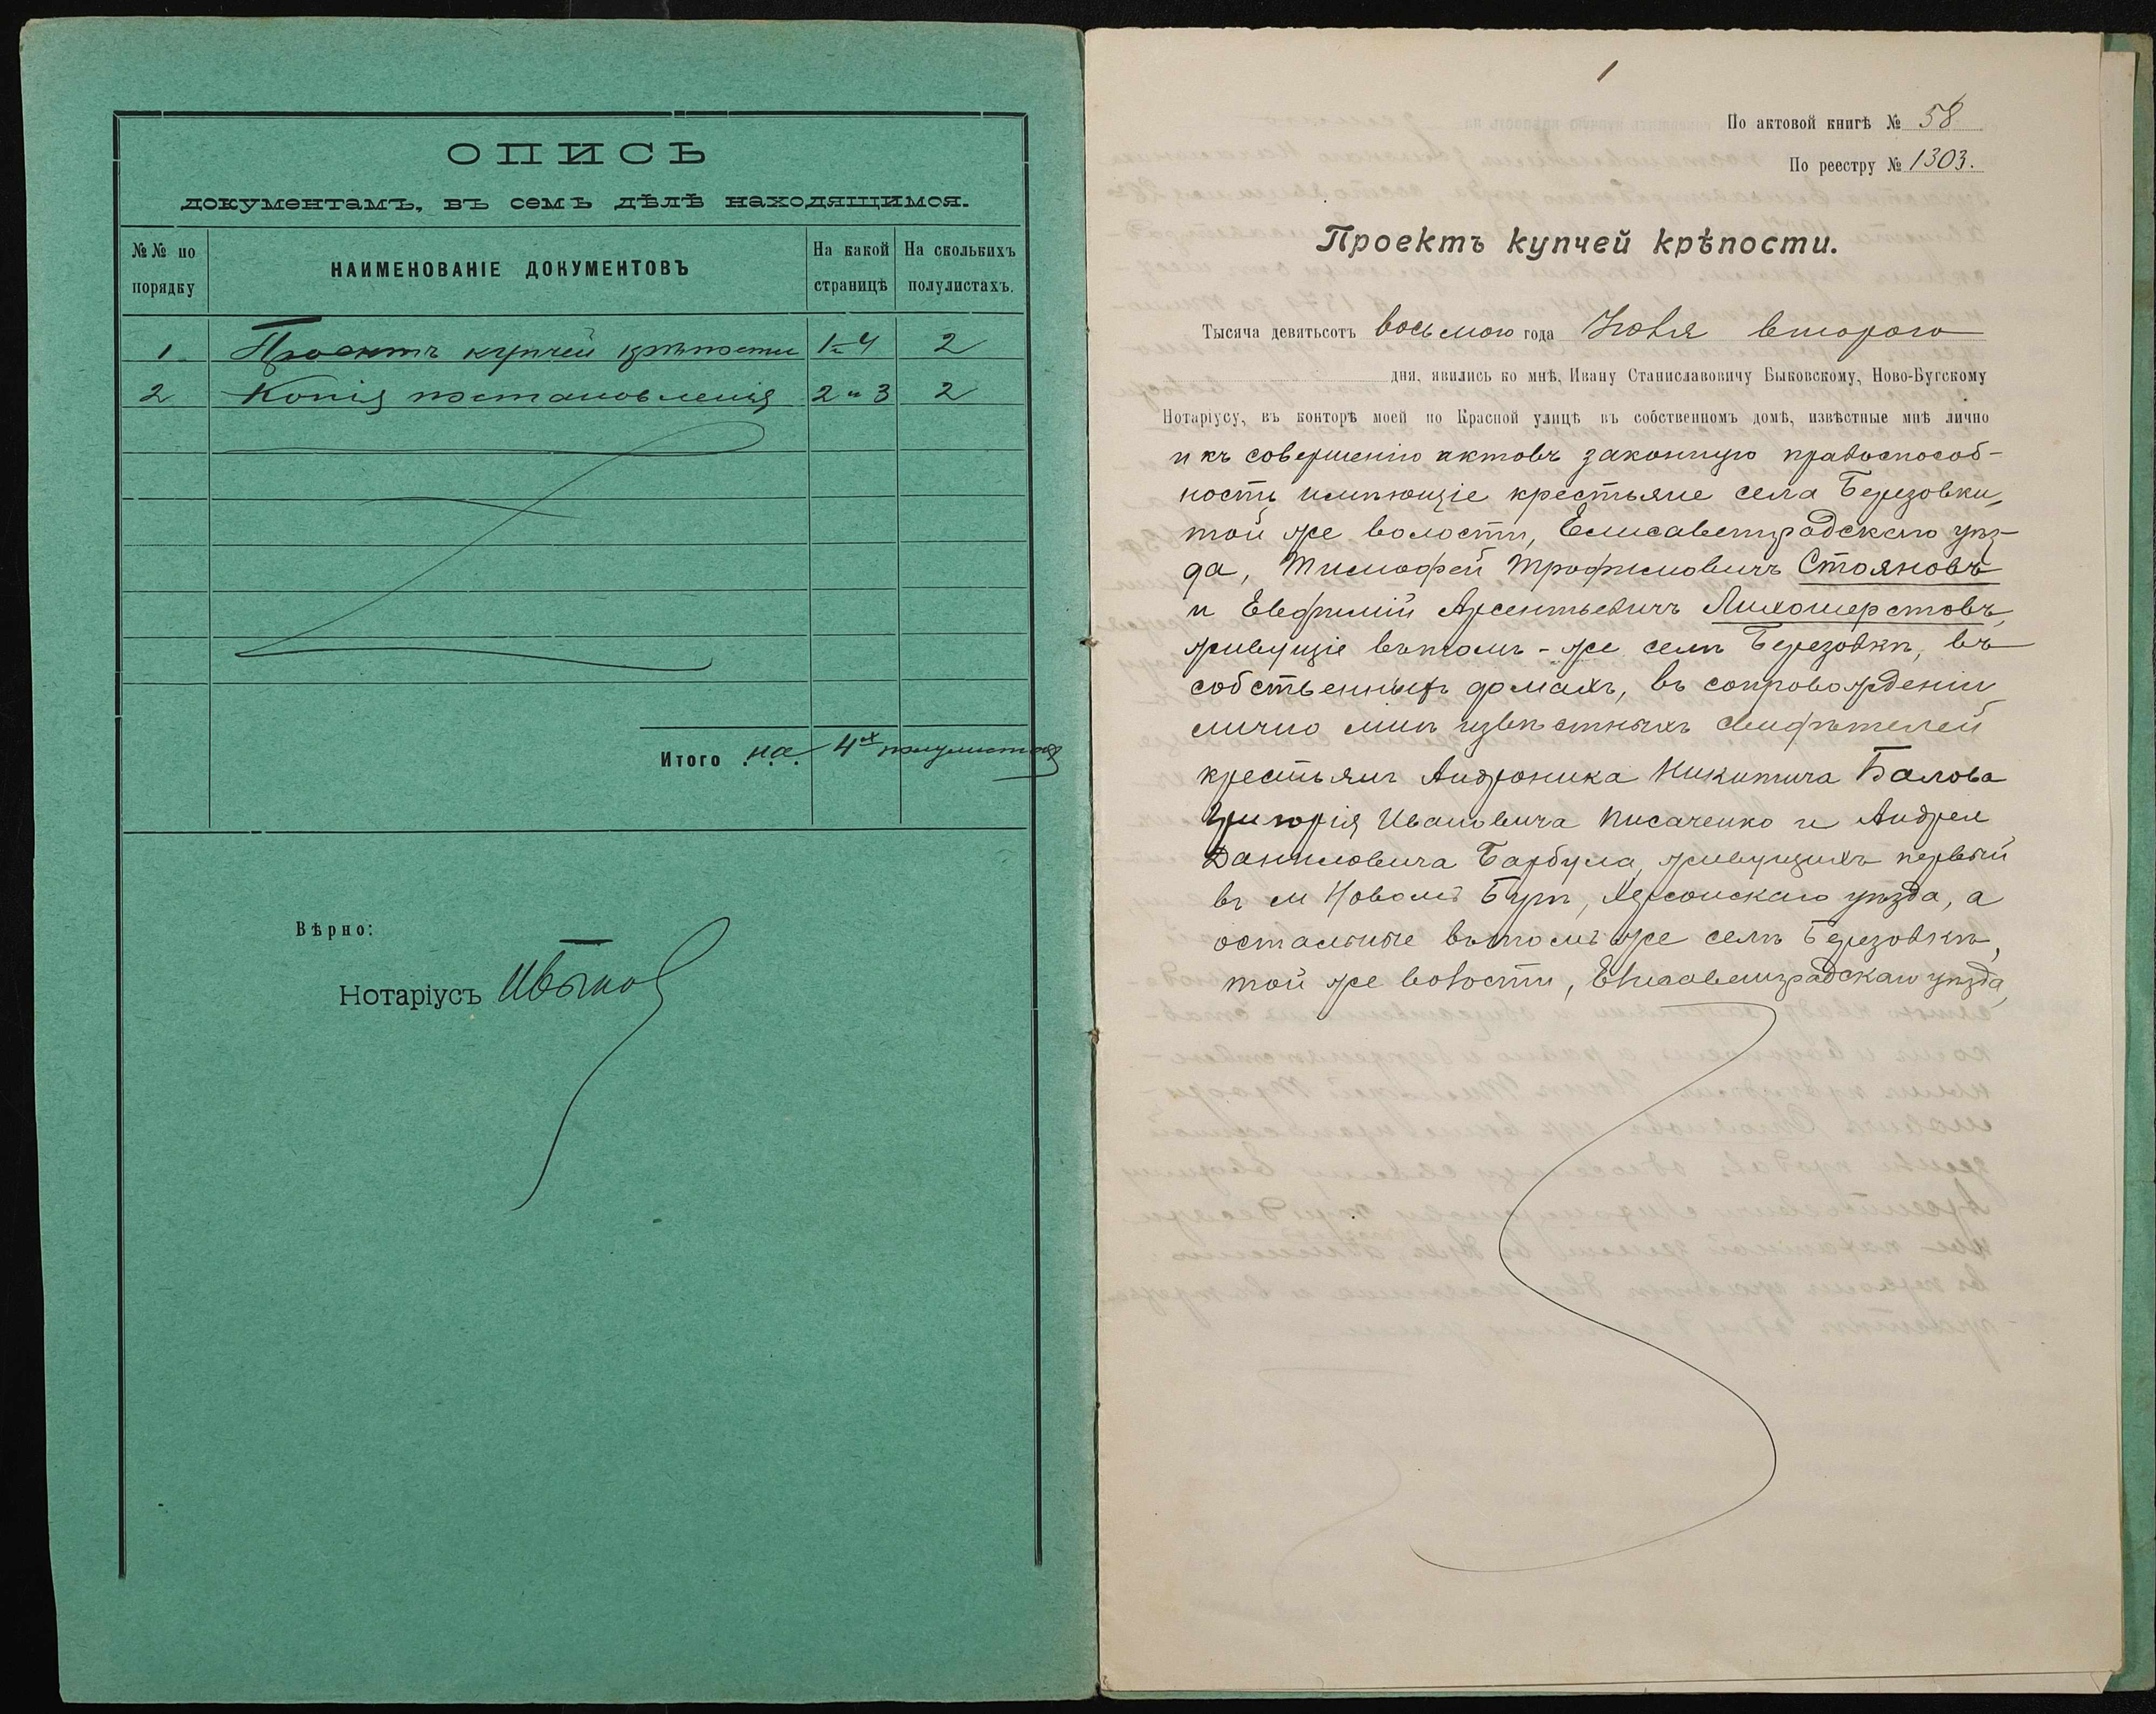 ОПИСЬ
документамъ, въ семъ дѣлѣ находящимся.
№№ по порядку
НАИМЕНОВАНІЕ ДОКУМЕНТОВЪ
На какой страницѣ
На сколькихъ полулистахъ.
1 Проектъ купчей крѣпости 1 и 4 2
2 Копія постановленія 2 и 3 2
Итого на 4х полулистахъ
Вѣрно:
Нотаріусъ
1
По актовой книгѣ № 58
По реестру № 1303.
Проектъ купчей крѣпости.
Тысяча девятьсотъ восьмого года второго
дня, явились ко мнѣ, Ивану Станиславовичу Быковскому, Ново-Бугскому
Нотаріусу, въ конторѣ моей по Красной улицѣ въ собственномъ домѣ, извѣстные мнѣ лично
и къ совершенію актовъ законную правоспособ-
ность имѣющіе крестьяне села Березовки,
той же волости, Елисаветградскаго уѣз-
да, Тимофей Трофимовичъ Стояновъ
и Евфимій Арсентьевичъ Лихошерстовъ,
живущіе въ томъ-же селѣ Березовкѣ, въ
собственныхъ домахъ, въ сопровожденіи
лично мнѣ извѣстныхъ свидѣтелей
крестьянъ Андроника Никитича Балова
Григорія Ивановича Писаченко и Андрея
Даниловича Барбула, живущихъ первый
въ м Новомъ Бугѣ, Херсонскаго уѣзда, а
остальные въ томъ же селѣ Березовкѣ,
той же волости, Елисаветградскаго уѣзда,